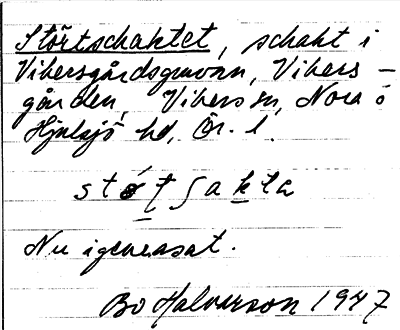 Störtschaktet, schakt i
Vikersgårdsgruvan, Vikers-
gården, Vikers sn, Nora o
Hjulsjö hd, Ör. l.
stǿt̠ ʃak̠ta
Nu igenrasat.
Bo Halvarson 1947